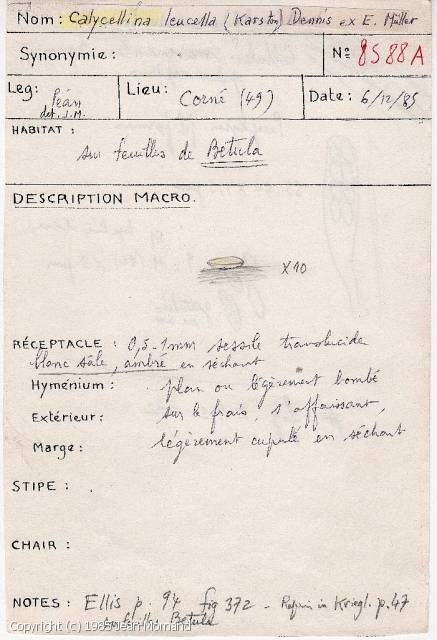 Nom: Calycellina leucella (Karsten) Dennis ex E. Müller
Synonymie: Nº 8588A
Leg: Péan Lieu: Corné (49) Date: 6/12/85
det. J.M.
HABITAT:
sur feuilles de Betula
DESCRIPTION MACRO.
X10
RÉCEPTACLE : 0,5-1mm sessile translucide
blanc sâle, ambré en séchant
Hyménium : plan ou légèrement bombé
Extérieur: sur le frais, s'affaissant,
Marge: légèrement cupulé en séchant
STIPE :
CHAIR :
NOTES : Ellis p. 94 fig 372 - in Kriegl. p.47
Betula
Copyright (c) 1985 Jean Mornand